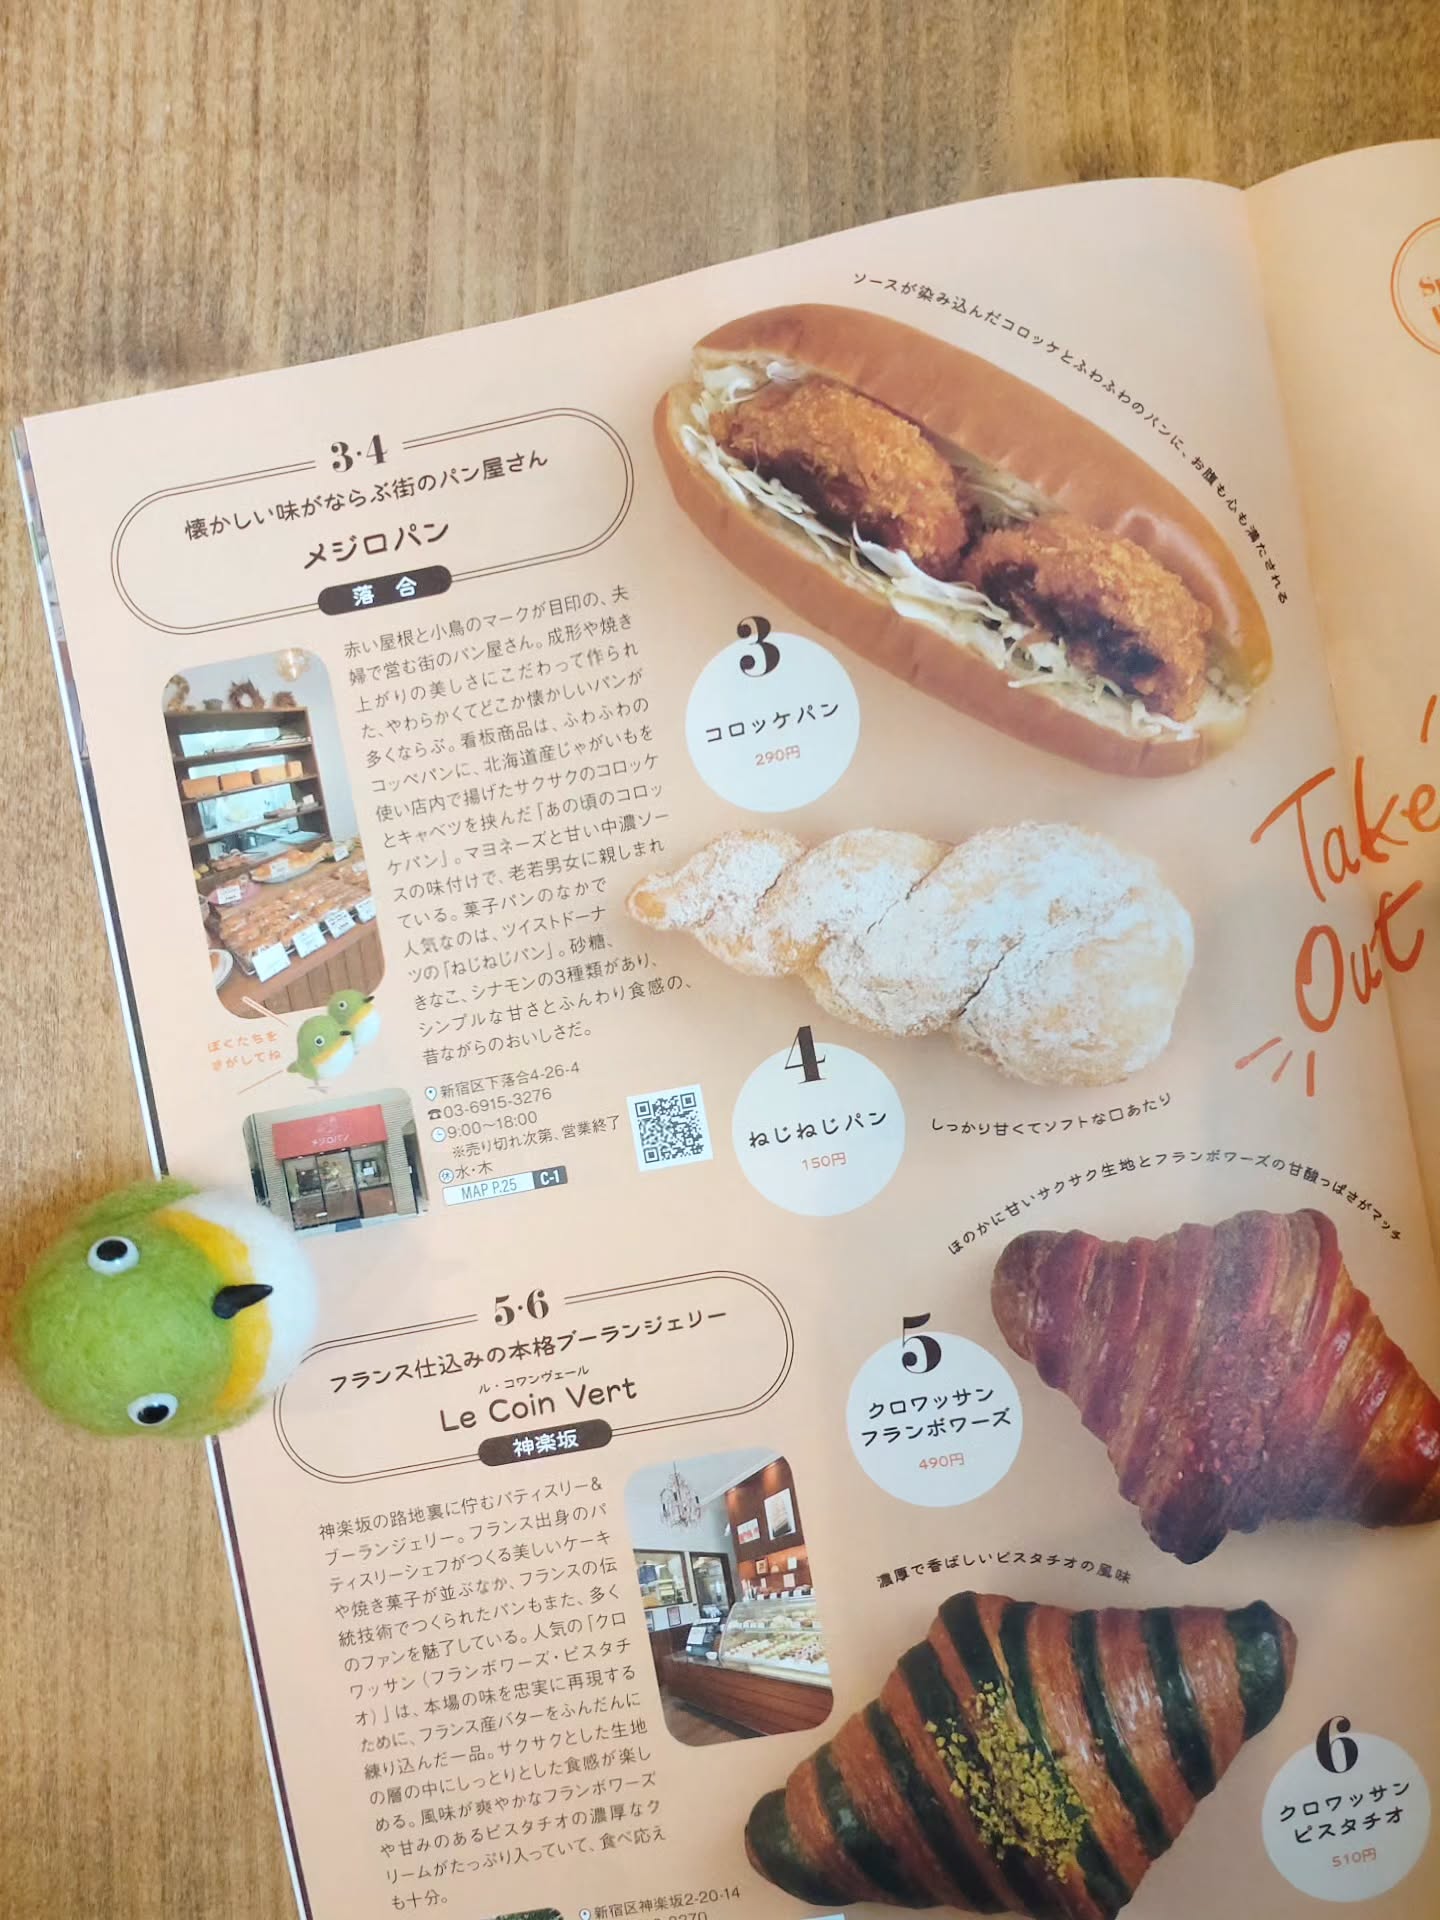 ソースが染み込んだコロッケとふわふわのパンに、お腹も心も満たされる
3・4
懐かしい味がならぶ街のパン屋さん
メジロパン
落合
赤い屋根と小鳥のマークが目印の、夫
婦で営む街のパン屋さん。成形や焼き
上がりの美しさにこだわって作られ
た、やわらかくてどこか懐かしいパンが
多くならぶ。看板商品は、ふわふわの
コッペパンに、北海道産じゃがいもを
使い店内で揚げたサクサクのコロッケ
とキャベツを挟んだ「あの頃のコロッ
ケパン」。マヨネーズと甘い中濃ソー
スの味付けで、老若男女に親しまれ
ている。菓子パンのなかで
人気なのは、ツイストドーナ
ツの「ねじねじパン」。砂糖、
きなこ、シナモンの3種類があり、
シンプルな甘さとふんわり食感の、
昔ながらのおいしさだ。
ぼくたちを
さがしてね
メジロパン
新宿区下落合4-26-4
☎03-6915-3276
9:00〜18:00
※売り切れ次第、営業終了
休水・木
MAP P.25 C-1
3
コロッケパン
290円
Take
Out
4
ねじねじパン
150円
しっかり甘くてソフトな口あたり
ほのかに甘いサクサク生地とフランボワーズの甘酸っぱさがマッチ
5・6
フランス仕込みの本格ブーランジェリー
ル・コワンヴェール
Le Coin Vert
神楽坂
神楽坂の路地裏に佇むパティスリー&
ブーランジェリー。フランス出身のパ
ティスリーシェフがつくる美しいケーキ
や焼き菓子が並ぶなか、フランスの伝
統技術でつくられたパンもまた、多く
のファンを魅了している。人気の「クロ
ワッサン(フランボワーズ・ピスタチ
オ)」は、本場の味を忠実に再現する
ために、フランス産バターをふんだんに
練り込んだ一品。サクサクとした生地
の層の中にしっとりとした食感が楽し
める。風味が爽やかなフランボワーズ
や甘みのあるピスタチオの濃厚なク
リームがたっぷり入っていて、食べ応え
も十分。
新宿区神楽坂2-20-14
5
クロワッサン
フランボワーズ
490円
濃厚で香ばしいピスタチオの風味
6
クロワッサン
ピスタチオ
510円